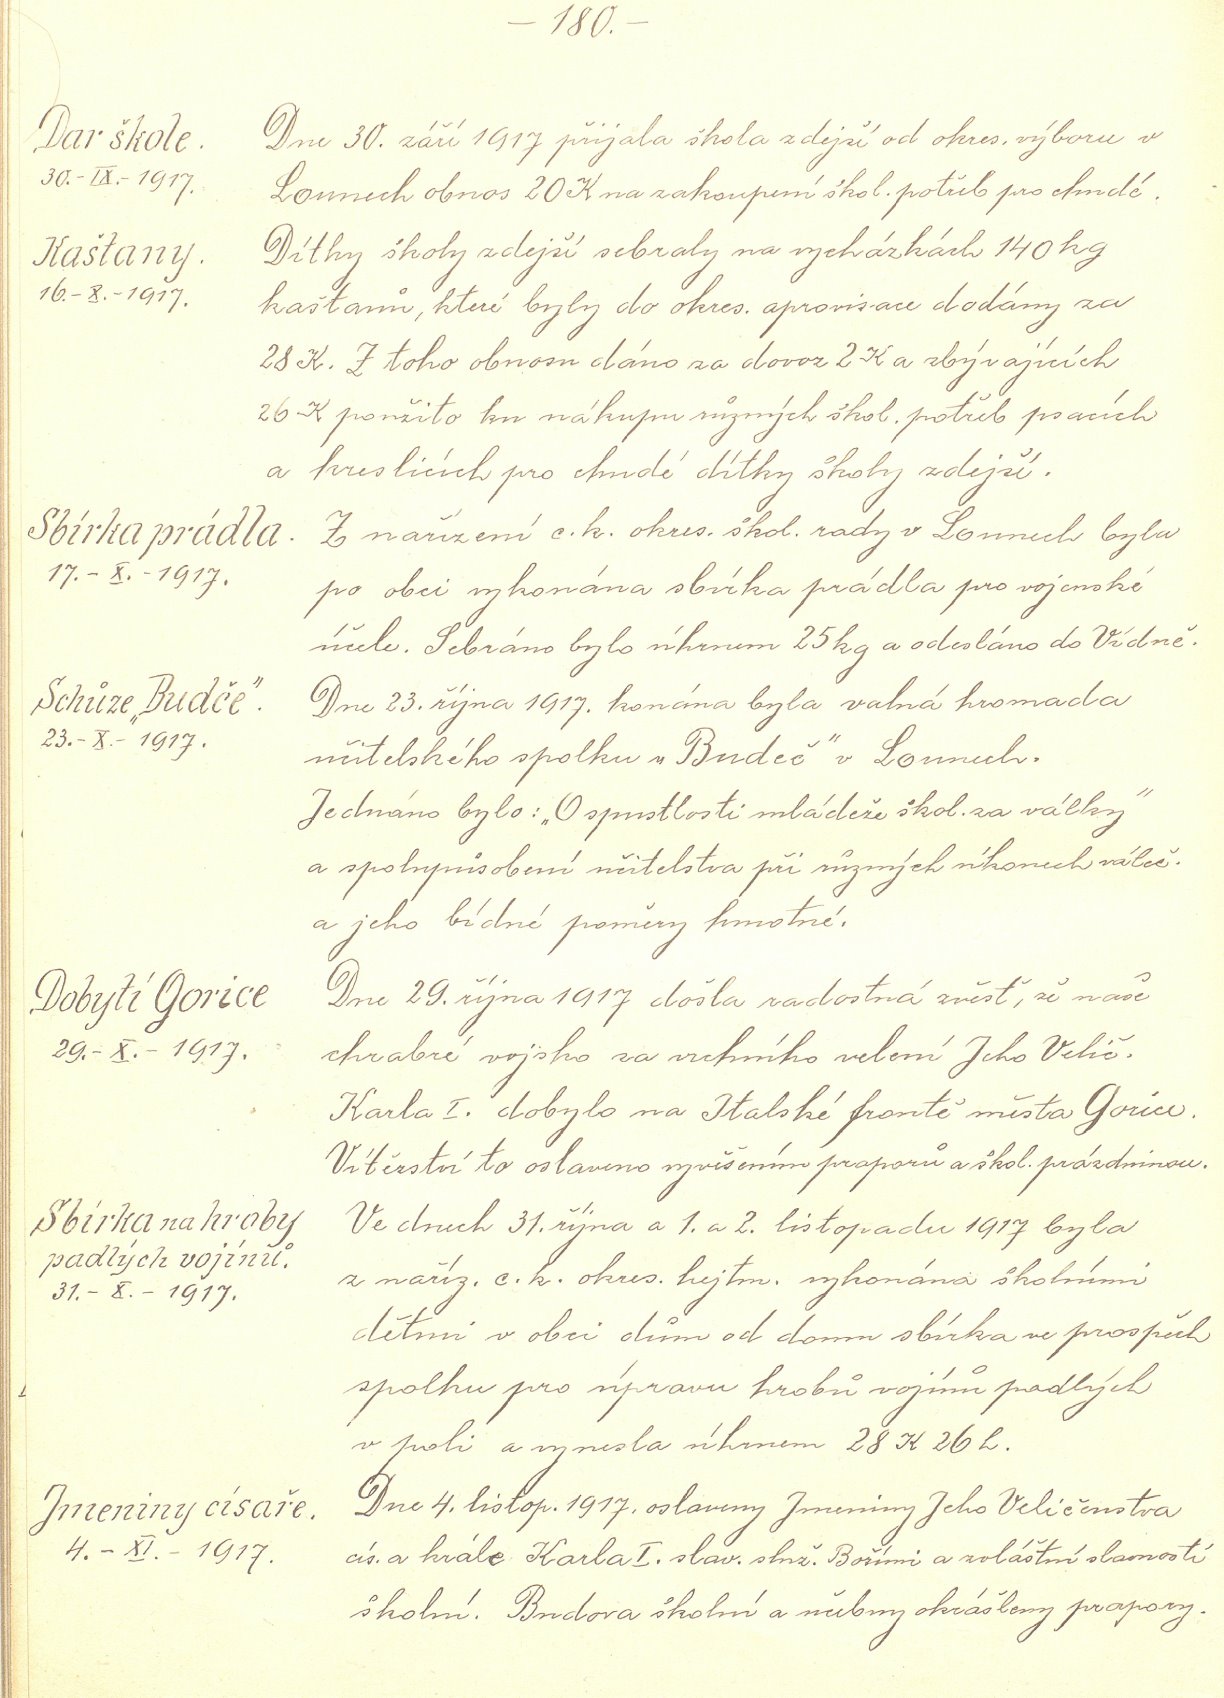 — 180. —
Dar škole.
30.- IX.- 1917.
Dne 30. září 1917 přijala škola zdejší od okres. výboru v
Lounech obnos 20 K na zakoupení škol. potřeb pro chudé.
Kaštany.
16.- X.- 1917.
Dítky školy zdejší sebraly na vycházkách 140 kg
kaštanů, které byly do okres. aprovisace dodány za
28 K. Z toho obnosu dáno za dovoz 2 K a zbývajících
26 K použito ku nákupu různých škol. potřeb psacích
a kreslicích pro chudé dítky školy zdejší.
Sbírka prádla.
17.- X.- 1917.
Z nařízení c. k. okres. škol. rady v Lounech byla
po obci vykonána sbírka prádla pro vojenské
účele. Sebráno bylo úhrnem 25 kg a odesláno do Vídně.
Schůze „Budče".
23.- X.- 1917.
Dne 23. října 1917. konána byla valná hromada
učitelského spolku „Budeč" v Lounech.
Jednáno bylo: „O spustlosti mládeže škol. za války"
a spolupůsobení učitelstva při různých úkonech váleč.
a jeho bídné poměry hmotné.
Dobytí Gorice
29.- X.- 1917.
Dne 29. října 1917 došla radostná zvěsť, že naše
chrabré vojsko za vrchního velení Jeho Velič.
Karla I. dobylo na Italské frontě města Gorice.
Vítězství to oslaveno vyvěšením praporů a škol. prázdninou.
Sbírka na hroby
padlých vojínů.
31.- X.- 1917.
Ve dnech 31. října a 1. a 2. listopadu 1917 byla
z naříz. c. k. okres. hejtm. vykonána školními
dětmi v obci dům od domu sbírka ve prospěch
spolku pro úpravu hrobů vojínů padlých
v poli a vynesla úhrnem 28 K 26 h.
Jmeniny císaře.
4.- XI.- 1917.
Dne 4. listop. 1917. oslaveny Jmeniny Jeho Veličenstva
cís. a krále Karla I. slav. služ. Božími a zvláštní slavností
školní. Budova školní a učebny okrášleny prapory.